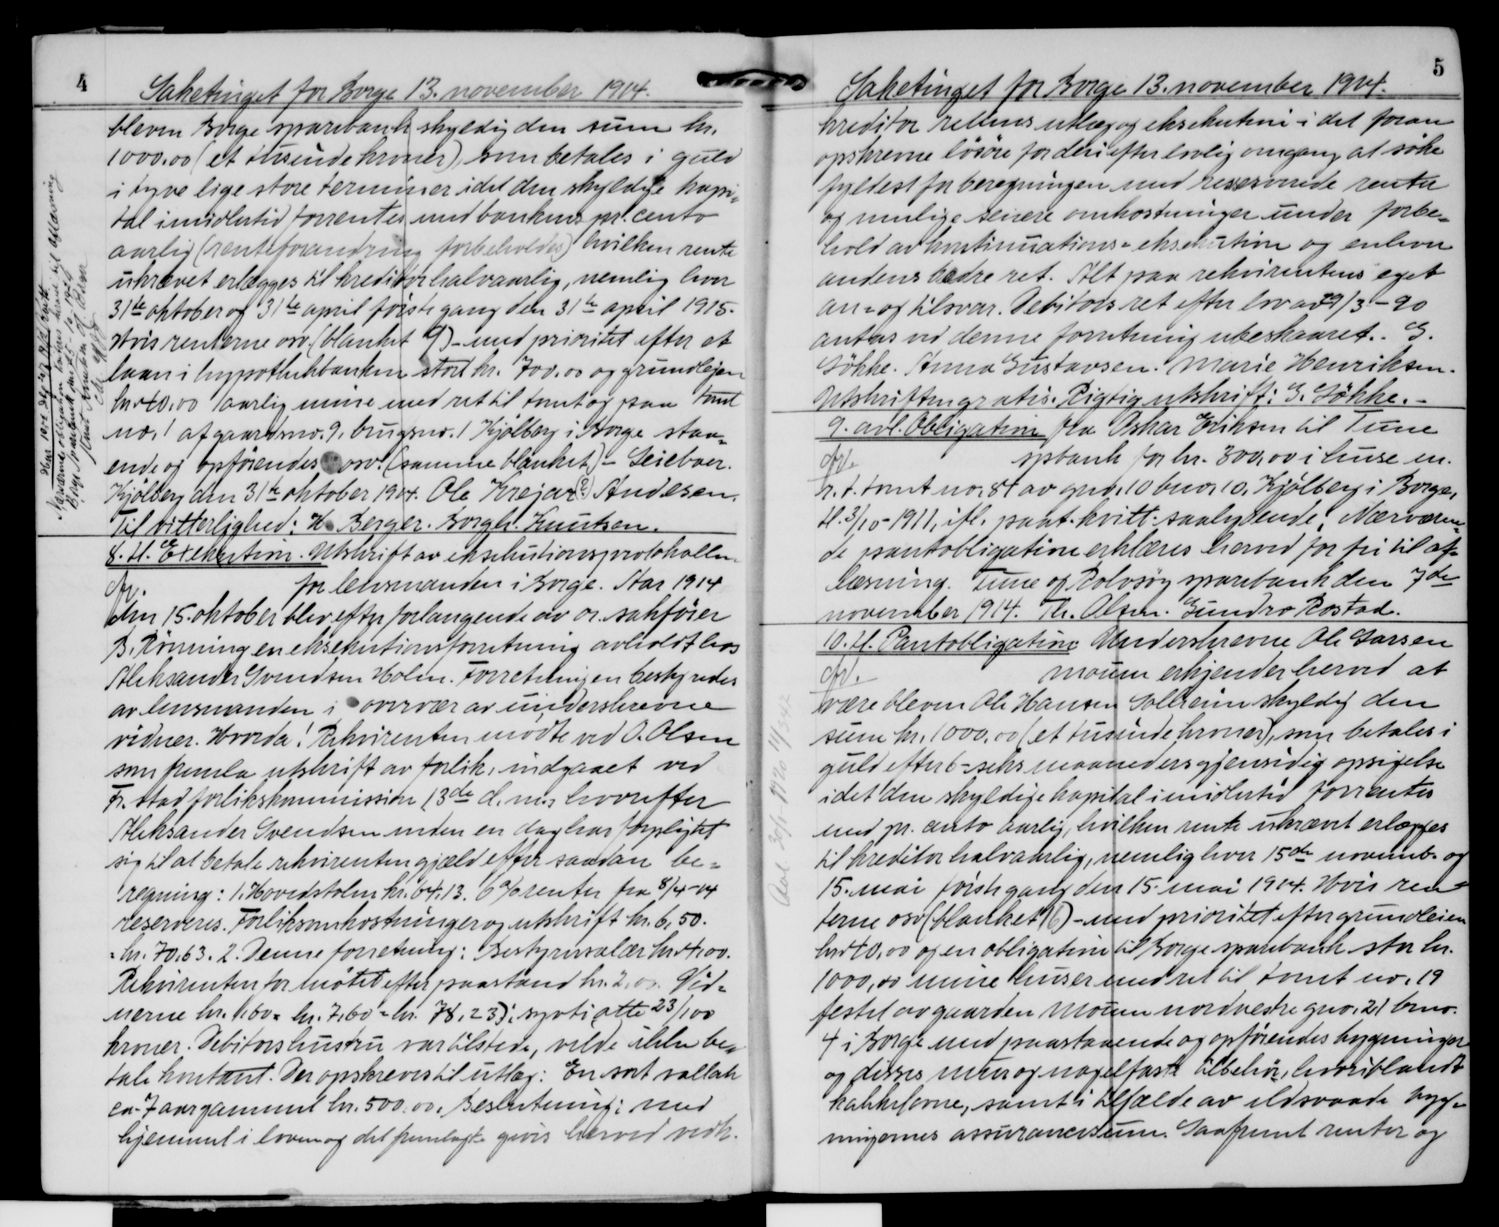 4
Saketinget for Borge 13. november 1914.
bleven Borge sparebank skyldig den sum kr.
1000.00 (et tusinde kroner), som betales i guld
i tyve lige store terminer idet den skyldige kapi-
tal imidlertid forrentes med bankens pr. cento
aarlig (renteforandring forbeholdes) hvilken rente
ukrævet erlægges til kreditor halvaarlig, nemlig hver
31te oktober og 31te april första gang den 31te april 1915.
Hvis renterne osv. (blanket 9) - med prioritet efter et
laan i hypothekbanken stort kr. 700.00 og grundlejen
kr. 40,00 aarlig mine med ret til tomt og paa tomt
no. 1 af gaardsno. 9, brugsno. 1 Kjölberg i Borge staa-
ende og opförendes osv. (samme blanket) - Leieboer.
Kjölberg den 31te oktober 1914. Ole Andesen.
Til vitterlighed: H. Berger. Borgh. Knutsen.
8. H. Exekution. Utskrift av eksekutionsprotokollen
for lensmanden i Borge. Aar 1914
den 15. oktober blev efter forlangende av or. sakförer
B. Rönning en eksekutionsforretning avholdt hos
Aleksander Svendsen Holm. Forretningen bestyredes
av lensmanden i overvær av underskrevne
vidner. Hvorda! Rekvirenten mödte ved O. Olsen
som fremla utskrift av forlik, indgaaet ved
Fr.stad forlikskommission 13de d. m., hvorefter
Aleksander Svendsen inden en dag har forpligtet
sig til at betale rekvirenten gjæld efter saadan be-
regning: 1. Hovedstolen kr. 64.13. 6 % renter fra 8/4-14
reserveres. Forliksomkostninger og utskrift kr. 6,50.
= kr. 70,63. 2. Denne forretning: Bestyrersalær kr. 4,00.
Rekvirenten for mötet efter paastand kr. 2,00. Vid-
nerne kr. 1,60 = kr. 7,60 = kr. 78,23): sytti otte 23/100
kroner. Debitors hustru var tilstede, vilde ikke be-
tale kontant. Der opskreves til utlæg: En sort vallak
ca 7 aar gammel kr. 500.00. Beslutning: med
hjemmel i loven og det fremlagte givis herved vedk.
5
Saketinget for Borge 13. november 1914.
kreditor rettens utlæg og eksekution i det foran
opskrevne lösöre for deri efter lovlig omgang at söke
fyldest for beregningen med reserverede renter
og mulige senere omkostninger under forbe-
hold av kontinuations-eksekution og enhver
andens bedre ret. Alt paa rekvirentens eget
an- og tilsvar. Debitors ret efter lov av 29/3-90
antas ved denne forretning ubeskaaret. G.
Gökke. Anna Gustavsen. Marie Henriksen.
Utskriften gratis. Rigtig utskrift: G. Gökke. -
9. avl. Obligation fra Oskar Eriksen til Tune
spbank for kr. 300,00 i huse m.
r. t. tomt no. 84 av gno. 10 bno. 10, Kjölberg i Borge,
tl. 3/10-1911, ifl. paat. kvitt. saalydende: Nærværen-
de pantobligation erklæres herved for fri til af-
læsning. Tune og Rolvsöy sparebank den 7de
november 1914. Th. Olsen. Gundro Rostad.
10. H. Pantobligation: Underskrevne Ole Larsen
Moum erkjender herved at
være bleven Ole Hansen Solheim skyldig den
sum kr. 1000,00 (et tusinde kroner), som betales i
guld efter 6 - seks maaneders gjensidig opsigelse
idet den skyldige kapital imidlertid forrentes
med pr. cento aarlig, hvilken rente ukrævet erlægges
til kreditor halvaarlig, nemlig hver 15de novemb. og
15. mai förste gang den 15. mai 1914. Hvis ren-
terne osv (blanket 6) - med prioritet efter grundleien
kr. 40,00 og en obligation til Borge sparebank stor kr.
1000,00 mine huser med ret til tomt no. 19
festet av gaarden Moum nordvestre gno. 21 bno.
4 i Borge med paastaaende og opförendes bygninger
og disses mur og nagelfaste tilbehör, hvoriblandt
kakkelovne, samt i tilfælde av ildsvaade byg-
ningernes assurancesum. Saafremt renter og